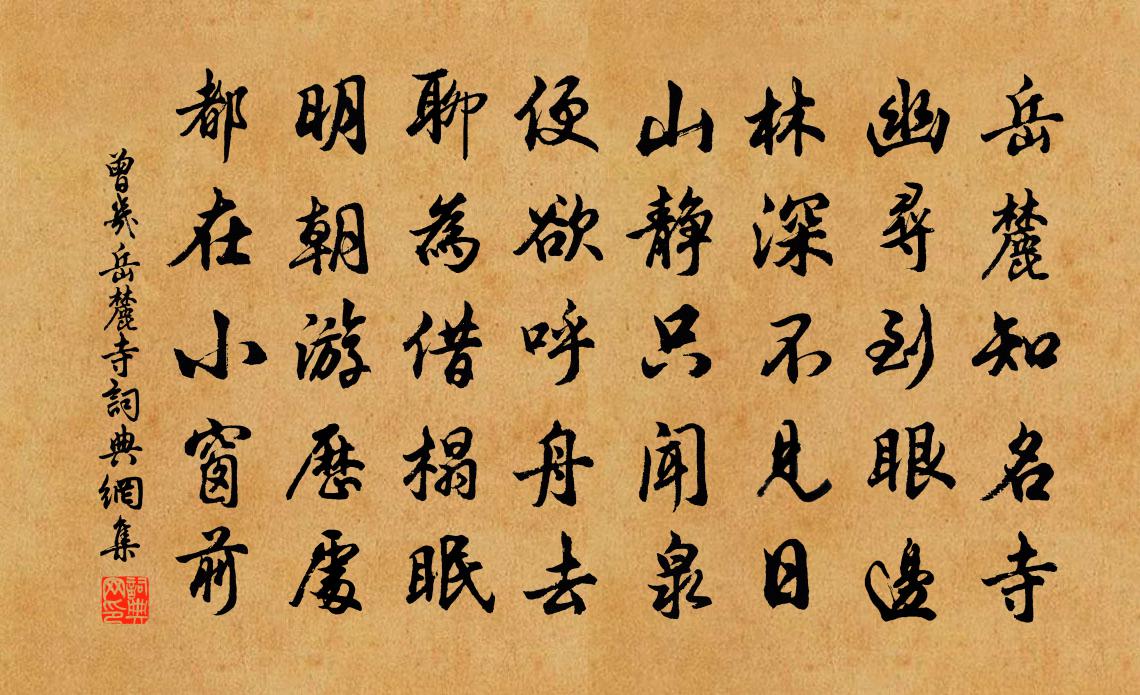 岳麓知名寺
幽尋到眼邊
林深不見日
山靜只聞泉
便欲呼舟去
聊為借榻眠
明朝游歷處
都在小窗前
曾幾岳麓寺詞典網集
詞典網印